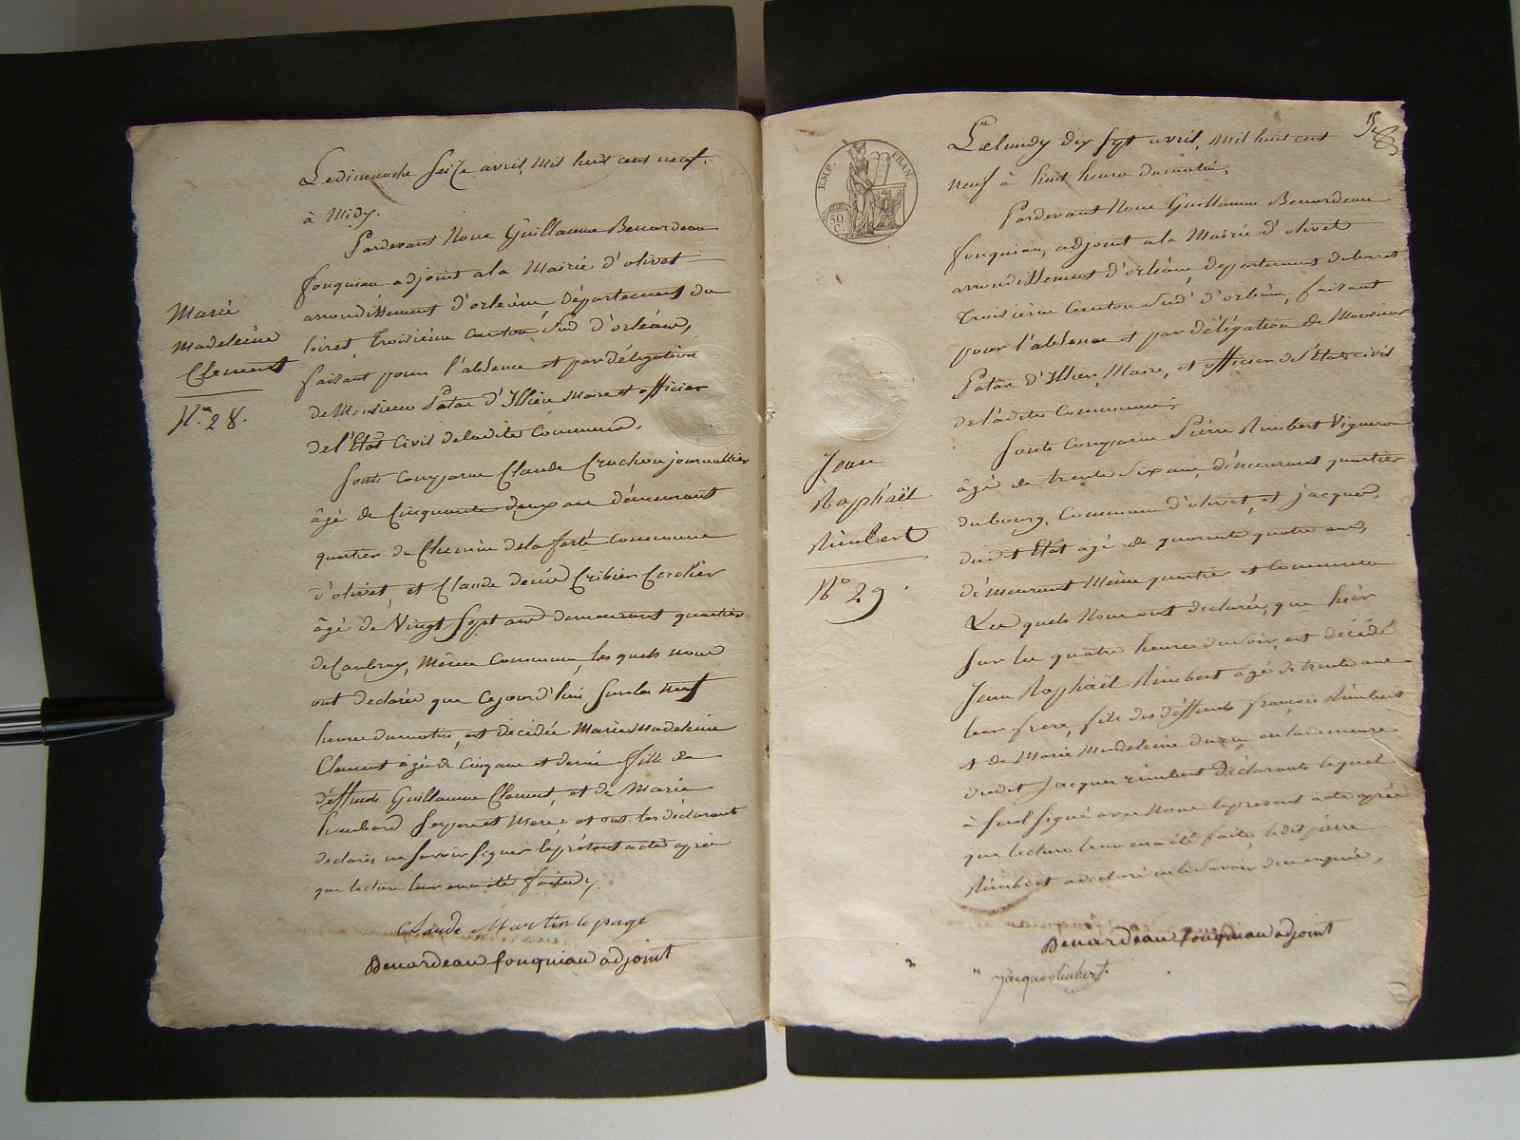 Le dimanche Seize avril, Mil huit cent neuf.
à Midy.
Pardevant Nous Guillaume Benardeau
fouquiau adjoint a la Mairie d'olivet
arrondissement d'orleans, Département du
loiret, troisième canton Sud d'orléans,
faisant pour l'absence et par délégation
de Monsieur Patas d'Illiers Maire et officier
de l'Etat Civil de la dite Commune,
Marie
Madeleine
Clement
N.° 28.
Sont Comparus Claude Cruchon journallier
âgé de Cinquante deux ans demeurant
quartier du Chemin de la ferté commune
d'olivet et Claude Cribier
âgé de Vingt Sept ans demeurant quartier
de Caubray, Même Commune, les quels nous
ont declarés que Cejourd'hui Sur les neuf
heures du matin, est décidée Marie Madeleine
Clement âgée de Cinq ans et demie fille de
déffunts Guillaume Clement, et de Marie
Ses pere et Mere et ont les déclarants
declarés ne Savoir Signer le présent acte après
que lecture leur en a été faite
Claude Martin le page
Benardeau fouquiau adjoint
EMP. FRAN.
50
C.
Le lundy dix Sept avril, Mil huit cent
neuf à huit heures du matin,
Pardevant Nous Guillaume Benardeau
fouquiau, adjoint a la Mairie d'olivet
arrondissement d'orléans departement du loiret
troisième Canton Sud d'orléans, faisant
pour l'absence et par délégation de Monsieur
Patas d'Illiers, Maire, et officier de l'Etat civil
de la dite Commune;
Jean
Raphaël
Rimbert
N° 29
Sont Comparus Pierre Rimbert Vigneron
âgé de trente Six ans, demeurant quartier
du bourg, Commune d'olivet, et jacques,
dudit Etat âgé de quarante quatre ans,
demeurant Même quartier et Commune
Les quels Nous ont declarés, que hier
Sur les quatre heures du soir, est décédé
Jean Raphaël Rimbert âgé de trente ans
leur frere, fils des déffunts françois Rimbert
et de Marie Madeleine en la demeure
dudit Jacques rimbert Déclarants lequel
à Seul Signé avec Nous le present acte après
que lecture leur en a été faite, ledit pierre
Rimbert a declaré ne le Savoir de ce enquis,
Benardeau fouquiau adjoint
jacques Rinbert